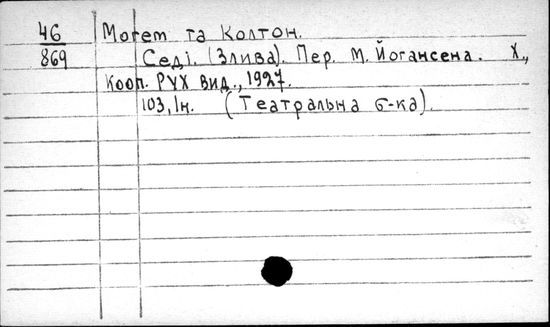 46 Могем та Колтон.
869 Седі. (Злива). Пер. М. Йогансена. Х.,
Кооп. РУХ вид., 1927.
103, 1н. (Театральна б-ка).